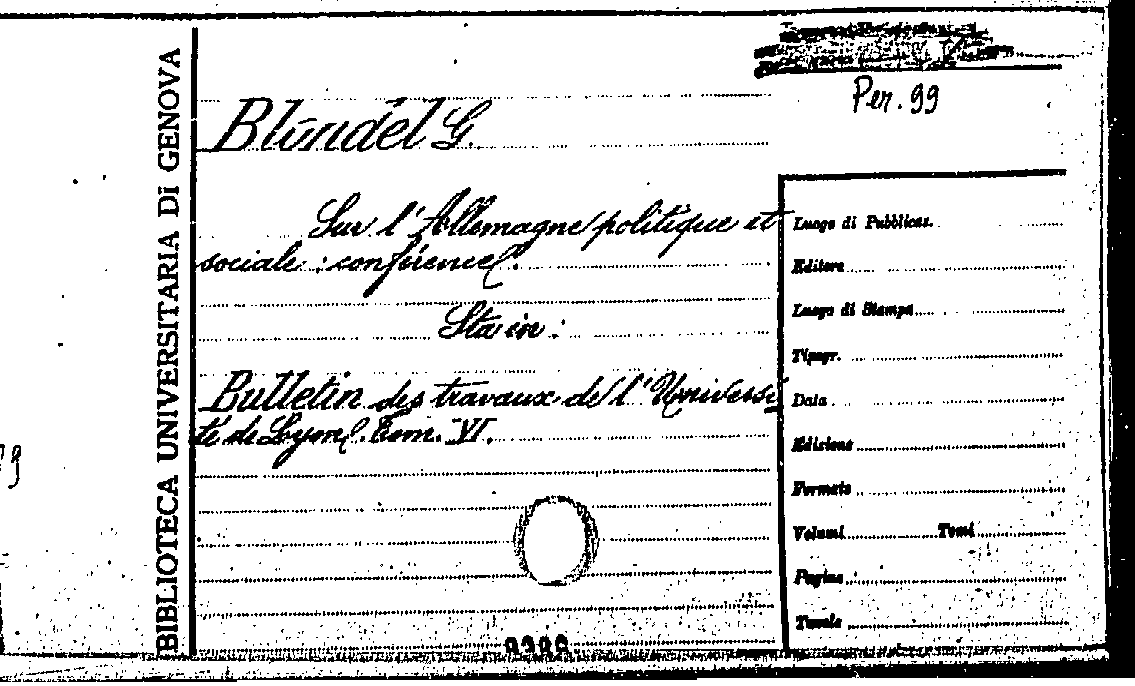 BIBLIOTECA UNIVERSITARIA DI GENOVA
Per. 99
Blondel G.
Sur l'Allemagne politique et
sociale : conférence.
Sta in:
Bulletin des travaux de l'Universi
té de Lyon. Tom. VI.
Luogo di Pubblicaz.
Editore
Luogo di Stampa
Tipogr.
Data
Edizione
Formato
Volumi Tomi
Pagine
Tavole